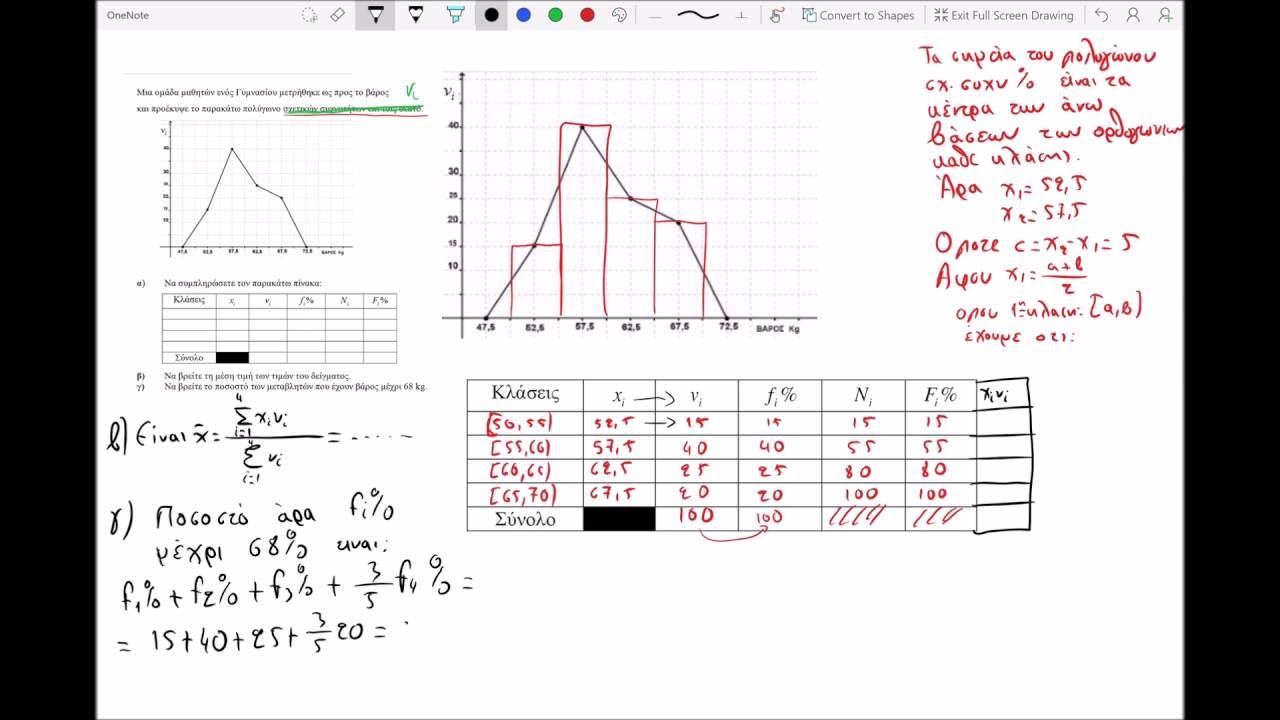 OneNote
Convert to Shapes
Exit Full Screen Drawing
Μια ομάδα μαθητών ενός Γυμνασίου μετρήθηκε ως προς το βάρος
νi
και προέκυψε το παρακάτω πολύγωνο σχετικών συχνοτήτων επι τοις εκατό.
νi
40
30
25
20
15
10
47,5 52,5 57,5 62,5 67,5 72,5 ΒΑΡΟΣ Kg
α) Να συμπληρώσετε τον παρακάτω πίνακα:
Κλάσεις xi νi fi% Ni Fi%
Σύνολο
β) Να βρείτε τη μέση τιμή των τιμών του δείγματος.
γ) Να βρείτε το ποσοστό των μεταβλητών που έχουν βάρος μέχρι 68 kg.
νi
40
30
25
20
15
10
47,5 52,5 57,5 62,5 67,5 72,5 ΒΑΡΟΣ Kg
Τα σημεία του πολυγώνου
σχ. συχν % είναι τα
κέντρα των άνω
βάσεων των ορθογωνίων
κάθε κλάσης.
Άρα x1 = 52,5
x2 = 57,5
Οποτε c = x2 - x1 = 5
Αφου x1 = α+β/2
οπου 1η κλαση: [α,β)
έχουμε οτι:
Κλάσεις xi → νi fi% Ni Fi% xiνi
[50,55) 52,5 → 15 15 15 15
[55,60) 57,5 40 40 55 55
[60,65) 62,5 25 25 80 80
[65,70) 67,5 20 20 100 100
Σύνολο 100 100
β) Είναι x̄ = Σ⁴i=1 xiνi / Σ⁴i=1 νi = ......
γ) Ποσοστό άρα fi%
μέχρι 68% ειναι:
f1% + f2% + f3% + 3/5 f4% =
= 15+40+25+ 3/5 20 =